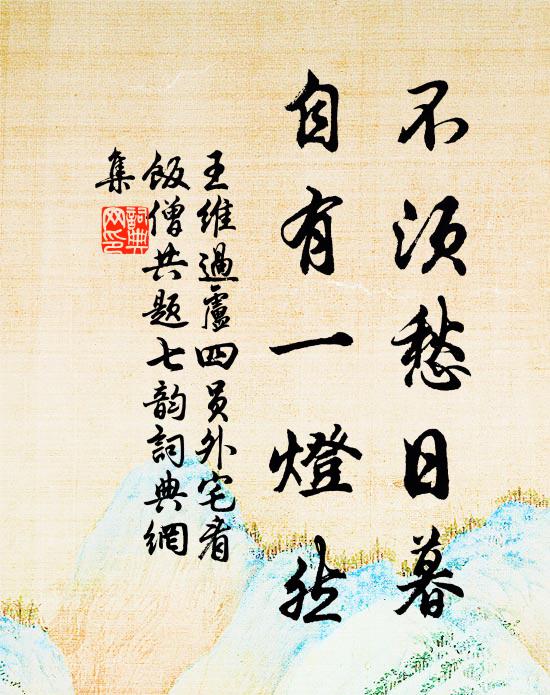 不須愁日暮
自有一燈然
王維過盧四員外宅看
飯僧共題七韵詞典網
集
詞典
网印